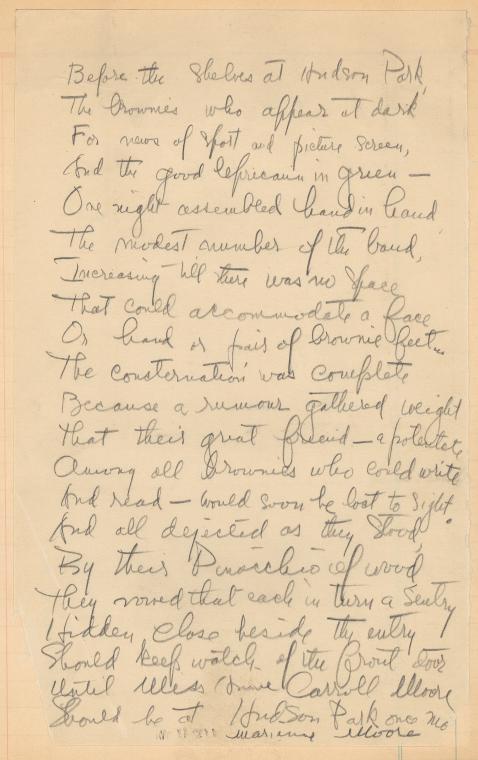 Before the shelves at Hudson Park,
The brownies who appear at dark
For news of sport and picture screen,
And the good lepricaun in green —
One night assembled hand in hand
The modest number of the band,
Increasing till there was no space
That could accommodate a face
Or hand or pair of brownie feet
The consternation was complete
Because a rumour gathered weight
That their great friend — a potentate
Among all brownies who could write
And read — would soon be lost to sight.
And all dejected as they stood,
By their Pinocchio of wood
They vowed that each in turn a sentry
Hidden close beside the entry
Should keep watch of the front door
Until Miss Anne Carroll Moore
Should be at Hudson Park once mo
Marianne Moore